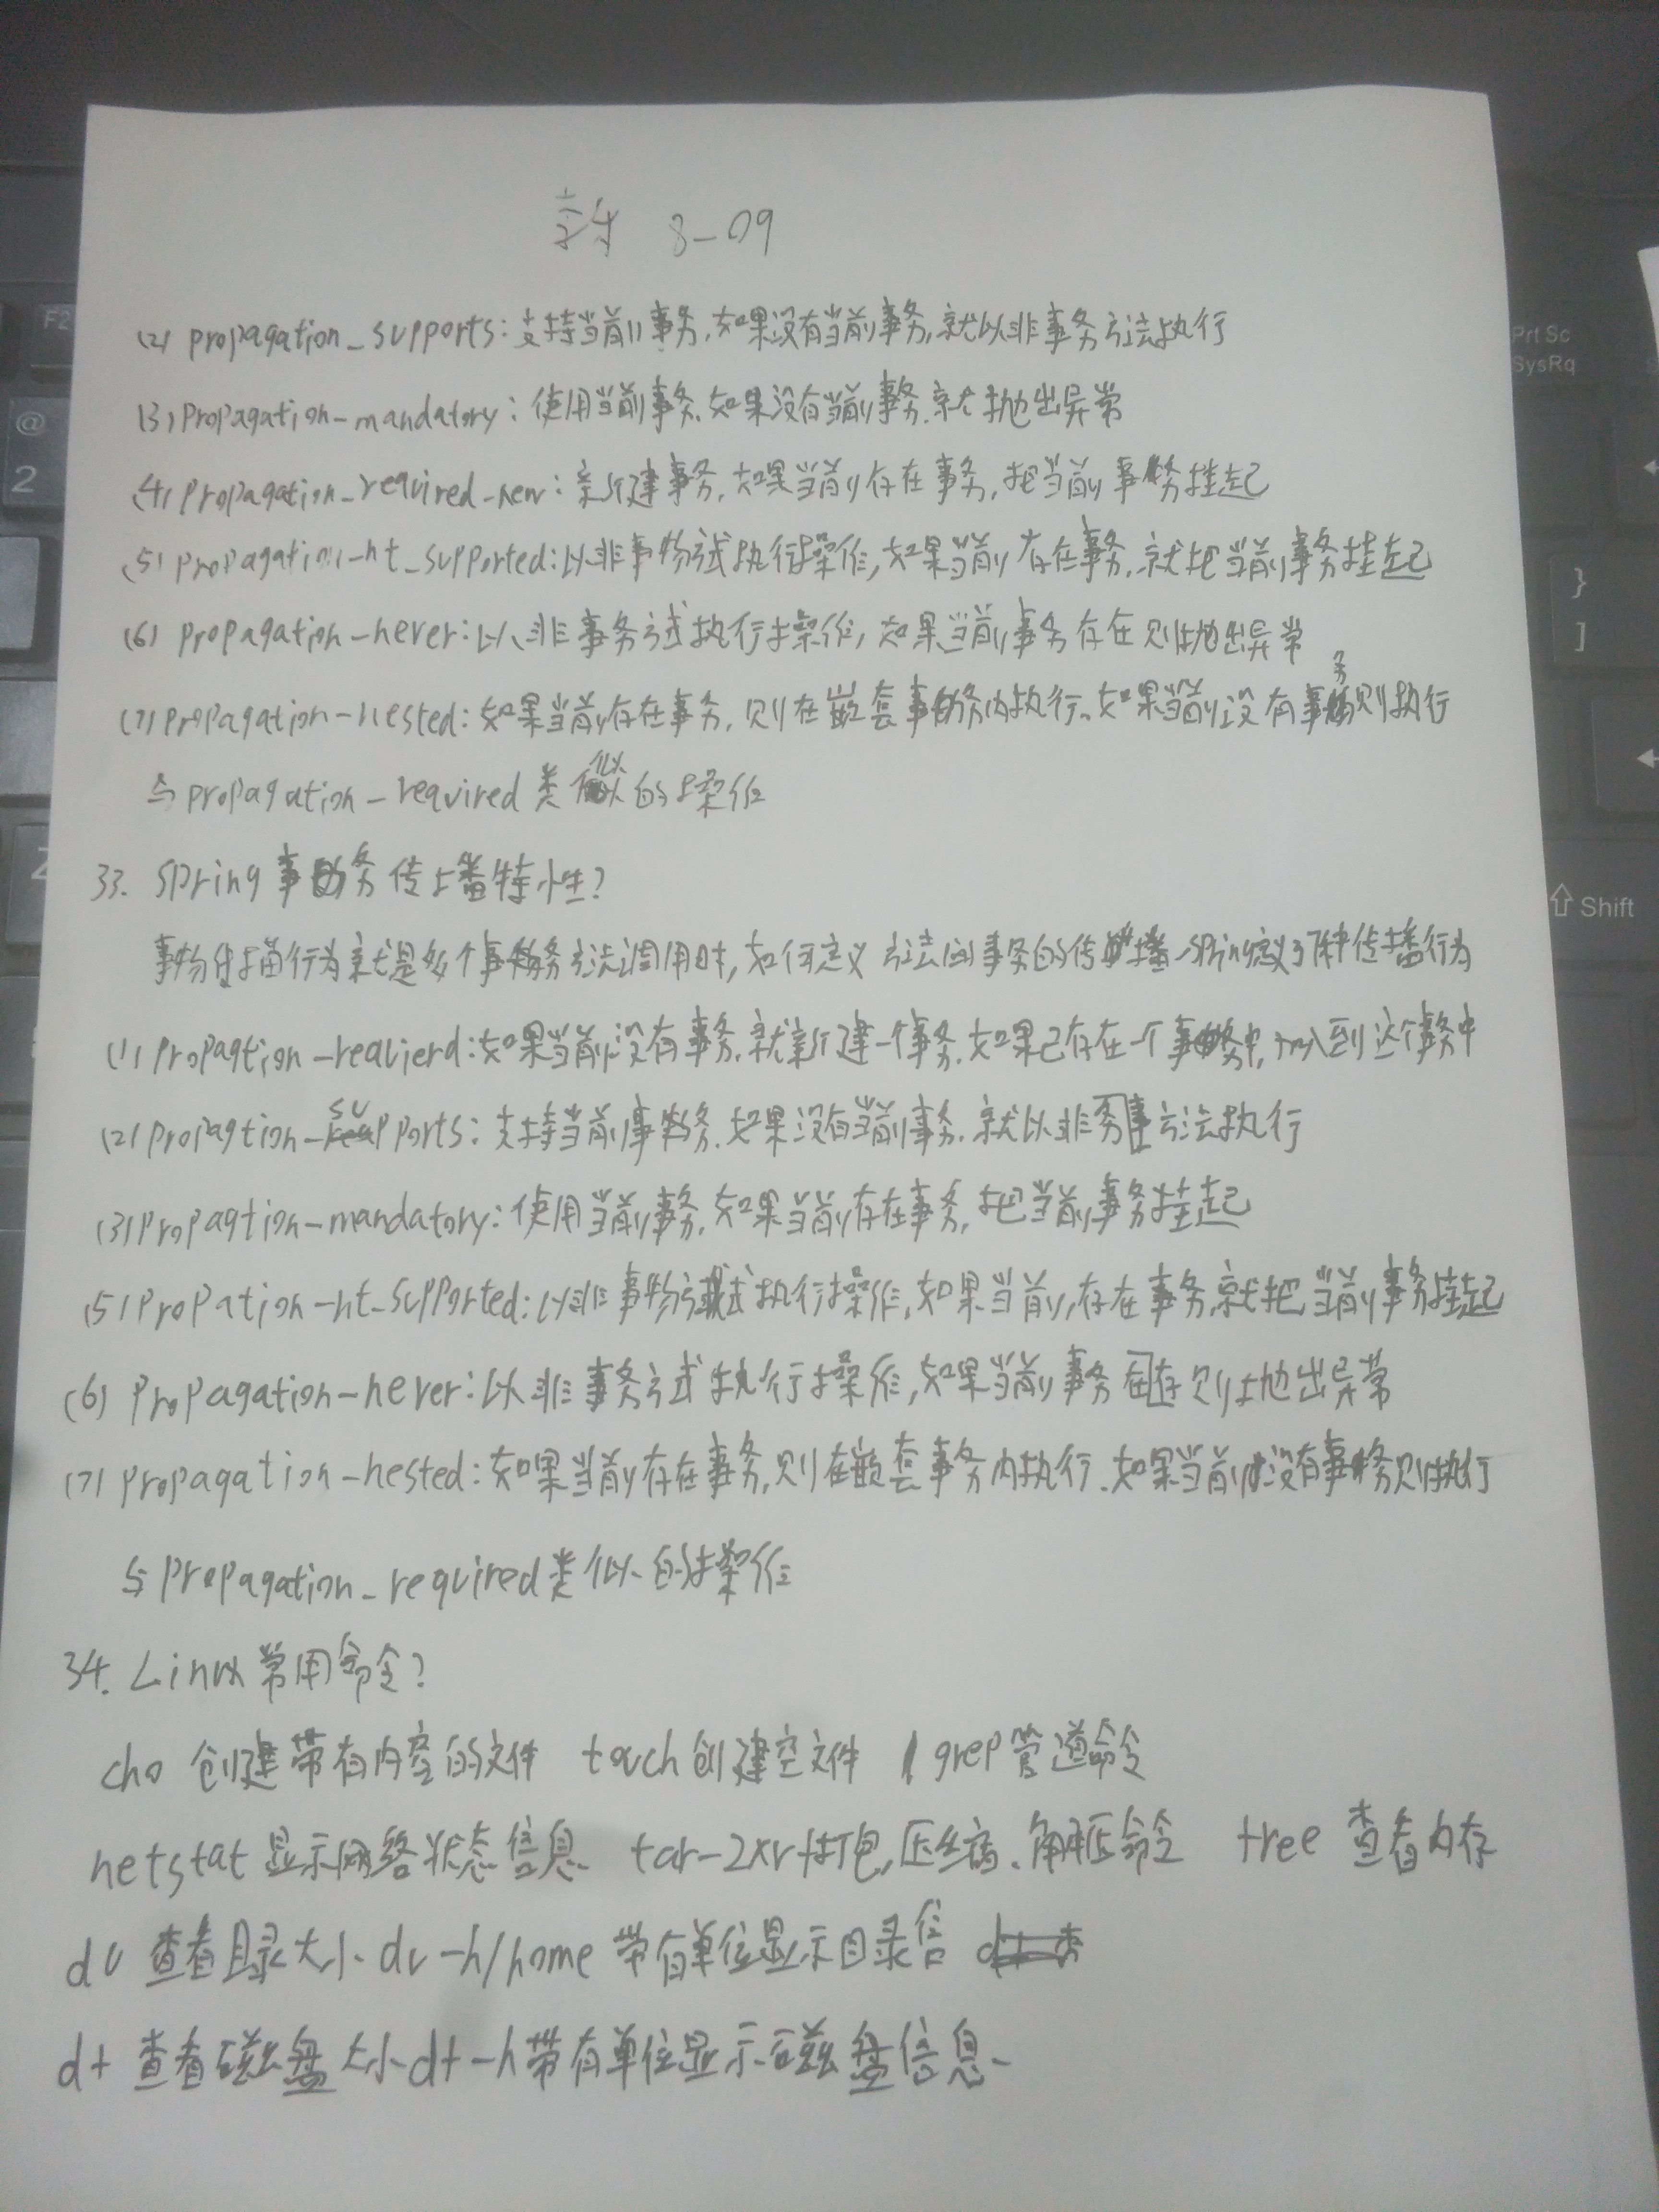 8-09
(2) propagation_supports:支持当前事务,如果没有当前事务,就以非事务方法执行
(3) Propagation-mandatory:使用当前事务,如果没有当前事务.就抛出异常
(4) Propagation_required_new:新建事务,如果当前存在事务,把当前事务挂起
(5) Propagation-nt_supported:以非事物方式执行操作,如果当前存在事务,就把当前事务挂起
(6) propagation-never:以非事务方式执行操作,如果当前事务存在则抛出异常
(7) propagation-nested:如果当前存在事务,则在嵌套事务内执行。如果当前没有事务则执行
与propagation-required类似的操作
33. Spring事务传播特性?
事物传播行为就是多个事务方法调用时,如何定义方法间事务的传播、spring定义了7种传播行为
(1) Propagtion-reauierd:如果当前没有事务.就新建一个事务.如果已存在一个事务中,加入到这个事务中
(2) Propagtion-supports:支持当前事务.如果没有当前事务.就以非务事方法执行
(3) Propagtion-mandatory:使用当前事务.如果当前存在事务,把当前事务挂起
(5) Propation-nt_supported:以非事物方式执行操作,如果当前存在事务,就把当前事务挂起
(6) Propagation-never:以非事务方式执行操作,如果当前事务存在则抛出异常
(7) propagation-nested:如果当前存在事务,则在嵌套事务内执行.如果当前没有事务则执行
与Propagation_required类似的操作
34. Linux常用命令?
cho 创建带有内容的文件 touch创建空文件 | grep管道命令
netstat 显示网络状态信息 tar-2xvf打包,压缩、解压命令 tree 查看内存
du 查看目录大小 du-h/home 带有单位显示目录信
df 查看磁盘大小df-h带有单位显示磁盘信息